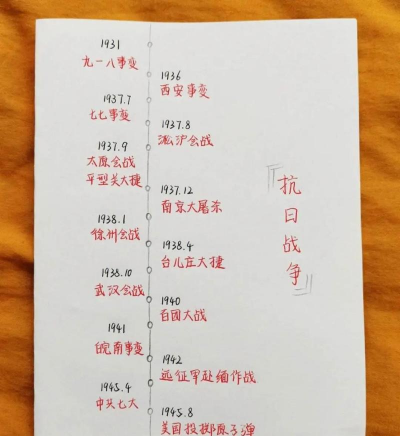 1931
九一八事变
1936
西安事变
1937.7
七七事变
1937.8
淞沪会战
1937.9
太原会战
平型关大捷
1937.12
南京大屠杀
1938.1
徐州会战
1938.4
台儿庄大捷
1938.10
武汉会战
1940
百团大战
1941
皖南事变
1942
远征军赴缅作战
1945.4
中共七大
1945.8
美国投掷原子弹
『抗日战争』